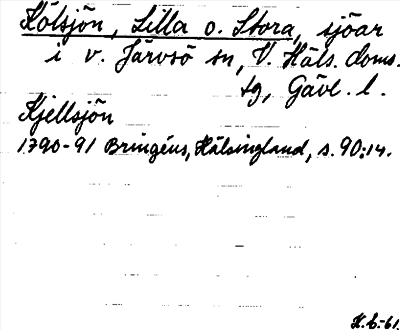 Kölsjön, Lilla o. Stora, sjöar
i v. Järvsö sn, V. Häls. doms.
tg, Gävl. l.
Kjellsjön
1790-91 Bringéus, Hälsingland, s. 90:14.
K.L.-61.